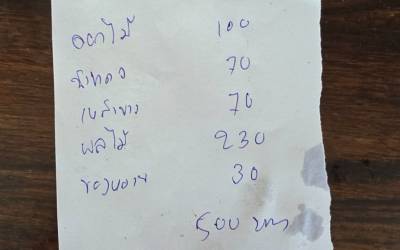 ดอกไม้ 100
น้ำแดง 70
เหล้าขาว 70
ผลไม้ 230
ของหวาน 30
500 บาท